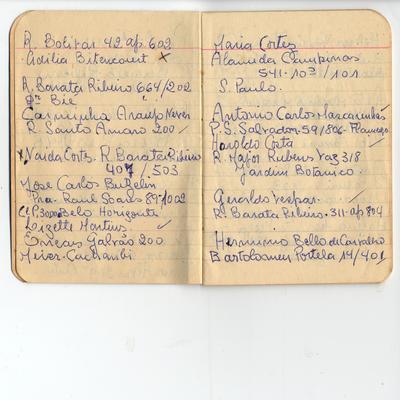 R. Bolivar 42 ap 602
Cecilia Bitencourt x
R. Barata Ribeiro 664/202
Bié
Carminha Araujo Neves
R Santo Amaro 200
x Naida Cortes. R. Barata Ribeiro
407/503
José Carlos
Pra. Raul Soares 89/1002
Belo Horizonte
Lizette Martins
Eneas Galvão 200
Meier. Cachambi
Maria Cortes
Alameda Campinas
541-10º/101
S. Paulo.
Antonio Carlos Mascarenhas
P.S. Salvador 59/806-Flamego
Haroldo Costa
R. Major Rubens Vaz 318
Jardim Botanico.
Geraldo Vespar.
R Barata Ribeiro. 311-ap 804
Herminio Bello de Carvalho
Bartolomeu Portela 14/401